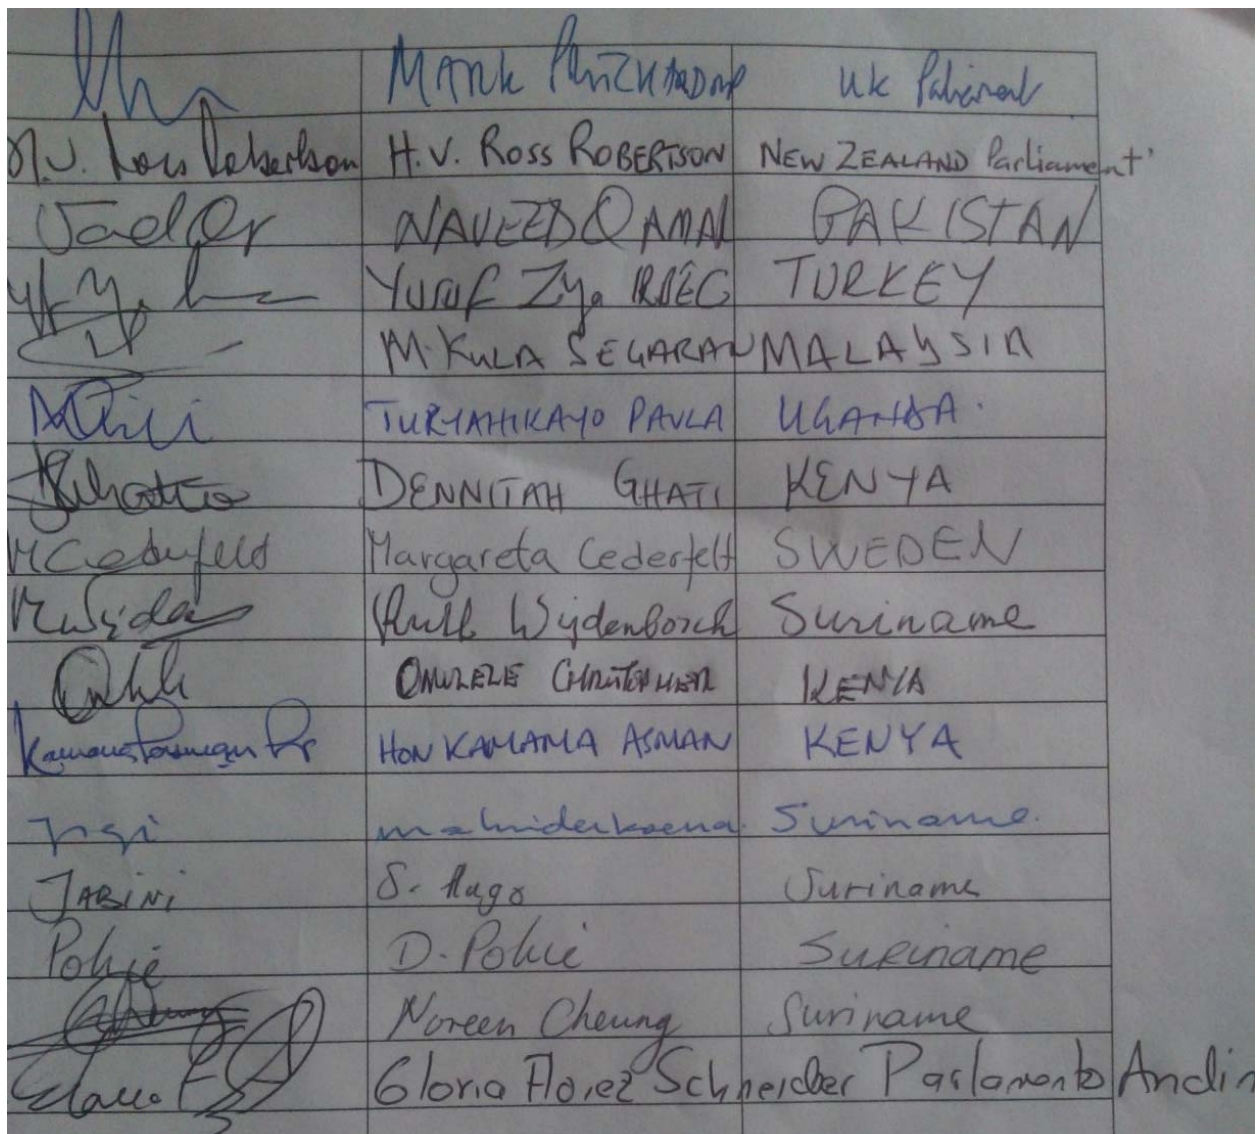 MARK PRITCHARD MP UK Parliament
H.V. Ross Robertson H.V. ROSS ROBERTSON NEW ZEALAND Parliament
NAVEED QAMAR PAKISTAN
YUSUF Ziya IRBEC TURKEY
M. KULA SEGARAN MALAYSIA
TURYAHIKAYO PAULA UGANDA.
DENNITAH GHATI KENYA
MCederfelt Margareta Cederfelt SWEDEN
Ruth Wijdenbosch Suriname
OMULELE CHRISTOPHER KENYA
HON KAMAMA ASMAN KENYA
Suriname.
JABINI S. Hugo Suriname
Pokie D. Pokie SURINAME
Noreen Cheung Suriname
Gloria Florez Schneider Parlamento Andin